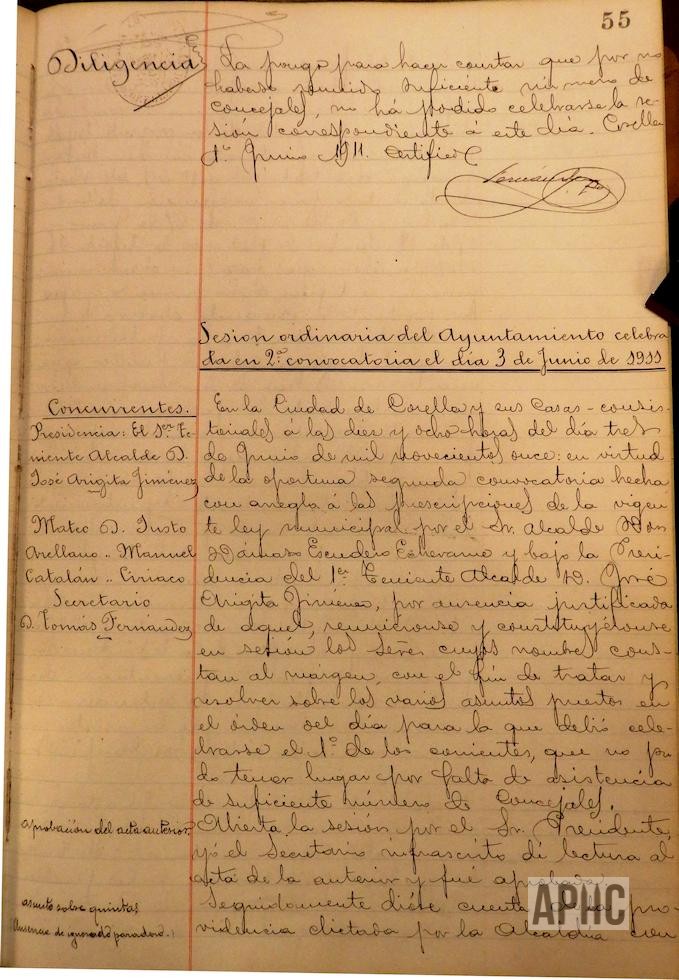 55
Diligencia
La pongo para hacer constar que por no
haberse reunido suficiente número de
concejales, no há podido celebrarse la se-
sión correspondiente á este día. Corella
1º Junio 1911. Certifico
Sesion ordinaria del Ayuntamiento celebra
da en 2ª convocatoria el día 3 de Junio de 1911
Concurrentes.
Presidencia: El 1er Te-
niente Alcalde D.
José Arigita Jiménez
Mateo D. Justo
Arellano .. Manuel
Catalán .. Ciriaco
Secretario
D. Tomás Fernandez
En la Ciudad de Corella y sus Casas-consis-
toriales á las diez y ocho horas del día tres
de Junio de mil novecientos once: en virtud
de la oportuna segunda convocatoria hecha
con arreglo á las prescripciones de la vigen
te ley municipal por el Sr. Alcalde Don
Dámaso Escudero y bajo la Presi-
dencia del 1er Teniente Alcalde D. José
Arigita Jiménez, por ausencia justificada
de aquel, reunieronse y constituyéronse
en sesión los Señes cuyos nombres cons-
tan al margen, con el fin de tratar y
resolver sobre los varios asuntos puestos en
el órden del día para la que debió cele-
brarse el 1º de los corrientes, que no pu-
do tener lugar por falta de asistencia
de suficiente número de Concejales.
aprobación del acta anterior.
Abierta la sesión por el Sr. Presidente,
yó el Secretario infrascrito dí lectura al
acta de la anterior y fué aprobada.
asunto sobre quintas
Ausencia de ignorado paradero.
Seguidamente dióse cuenta de la pro-
videncia dictada por la Alcaldía con
APHC